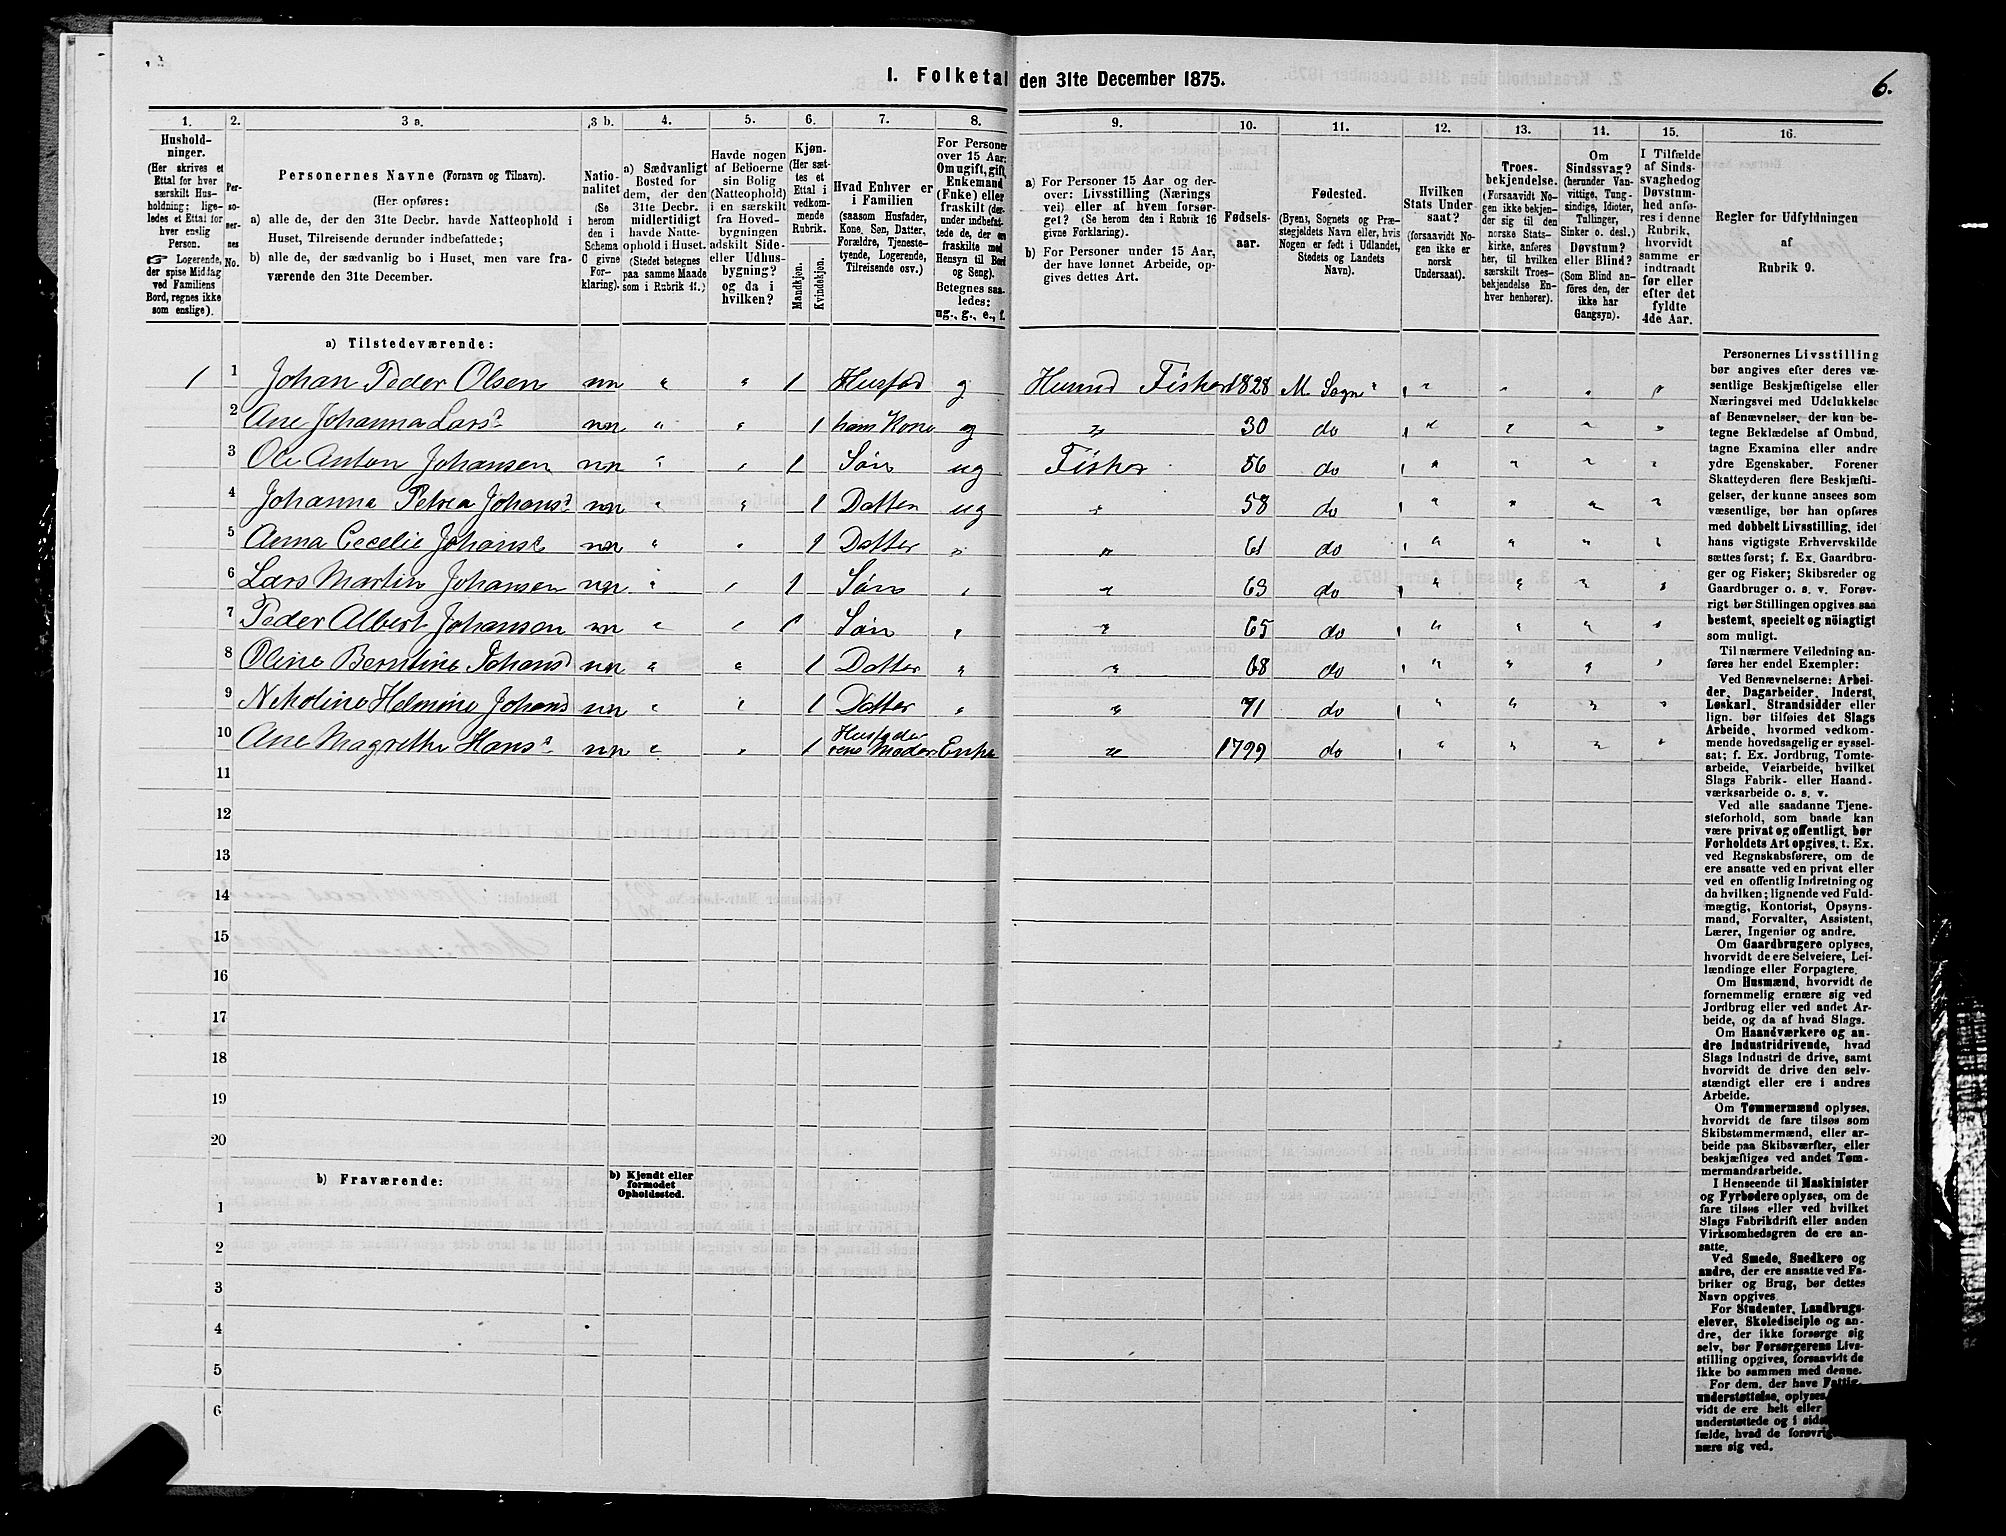 I. Folketal den 31te December 1875.
6.
1.
Hushold-
ninger.
(Her skrives et
Ettal for hver
særskilt Hus-
holdning; lige-
ledes et Ettal for
hver enslig
Person.
Logerende,
der spise Middag
ved Familiens
Bord, regnes ikke
som enslige).
2.
Per-
so-
ner-
nes
No.
3 a.
Personernes Navne (Fornavn og Tilnavn).
(Her opføres:
a) alle de, der den 31te Decbr. havde Natteophold i
Huset, Tilreisende derunder indbefattede;
b) alle de, der sædvanlig bo i Huset, men vare fra-
værende den 31te December.
3 b.
Natio-
nalitet
(Se
herom
den i
Schema
C givne
For-
klaring).
4.
a) Sædvanligt
Bosted for
dem, der den
31te Decbr.
midlertidigt
havde Natte-
ophold i Huset.
(Stedet betegnes
paa samme Maade
som i Rubrik 11.)
5.
Havde nogen
af Beboerne
sin Bolig
(Natteophold)
i en særskilt
fra Hoved-
bygningen
adskilt Side-
eller Udhus-
bygning?
og da i
hvilken?
6.
Kjøn.
(Her sæt-
tes et
Ettal i
vedkom-
mende
Rubrik.
Mandkjøn.
Kvindekjøn.
7.
Hvad Enhver er
i Familien
(saasom Husfader,
Kone, Søn, Datter,
Forældre, Tjeneste-
tyende, Logerende,
Tilreisende osv.)
8.
For Personer
over 15 Aar:
Om ugift, gift,
Enkemand
(Enke) eller
fraskilt (der-
under indbefat-
tede de, der er
fraskilte med
Hensyn til Bord
og Seng).
Betegnes saa-
ledes:
ug., g., e., f.
9.
a) For Personer 15 Aar og der-
over: Livsstilling (Nærings
vei) eller af hvem forsør-
get? (Se herom den i Rubrik 16
givne Forklaring).
b) For Personer under 15 Aar,
der have lønnet Arbeide, op-
gives dettes Art.
10.
Fødsels-
aar.
11.
Fødested.
(Byens, Sognets og Præ-
stegjeldets Navn eller, hvis
Nogen er født i Udlandet,
Stedets og Landets
Navn).
12.
Hvilken
Stats Under-
saat?
(forsaavidt No-
gen ikke er
norsk
Undersaat).
13.
Troes-
bekjendelse.
(Forsaavidt No-
gen ikke bekjen-
der sig til den
norske Stats-
kirke, anføres
her, til hvilken
særskilt Troes-
bekjendelse En-
hver henhører).
14.
Om
Sindssvag?
(herunder Van-
vittige, Tung-
sindige, Idioter,
Tullinger,
Sinker o. desl.).
Døvstum?
eller Blind?
(Som Blind an-
føres den, der
ikke har
Gangsyn).
15.
I Tilfælde
af Sinds-
svaghed og
Døvstum-
hed anfø-
res i denne
Rubrik,
hvorvidt
samme er
indtraadt
før eller
efter det
fyldte
4de Aar.
16.
Regler for Udfyldningen
af
Rubrik 9.
a) Tilstedeværende:
1 1 Johan Peder Olsen nn " " 1 Husfad g Husmd Fisker 1828 M Sogn " " " " "
2 Ane Johanna Larsd nn " " 1 ham Kone g " 30 do " " " "
3 Ole Anton Johansen nn " " 1 Søn ug Fisker 56 do " " " "
4 Johanna Petrea Johansd nn " " 1 Datter ug " 58 do " " " "
5 Anna Cecelie Johansd nn " " 1 Datter " " 61 do " " " "
6 Lars Martin Johansen nn " " 1 Søn " " 63 do " " " "
7 Peder Albert Johansen nn " " 1 Søn " " 65 do " " " "
8 Oline Berntine Johansd nn " " 1 Datter " " 68 do " " " "
9 Nikoline Helmine Johansd nn " " 1 Datter " " 71 do " " " "
10 Ane Magrethe Hansd nn " " 1 Husfaderens Moder Enke " 1799 do " " " "
11
12
13
14
15
16
17
18
19
20
b) Fraværende:
b) Kjendt eller
formodet
Opholdssted.
1
2
3
4
5
6
Personernes Livsstilling
bør angives efter deres væ-
sentlige Beskjæftigelse eller
Næringsvei med Udelukkelse
af Benævnelser, der kun be-
tegne Beklædelse af Ombud,
tagne Examina eller andre
ydre Egenskaber. Forener
Skatteyderen flere Beskjæfti-
gelser, der kunne ansees som
væsentlige, bør han opføres
med dobbelt Livsstilling, idet
hans vigtigste Erhvervskilde
sættes først; f. Ex. Gaardbru-
ger og Fisker; Skibsreder og
Gaardbruger o. s. v. Forøv-
rigt bør Stillingen opgives saa
bestemt, specielt og nöiagtigt
som muligt.
Til nærmere Veiledning an-
føres her endel Exempler:
Ved Benævnelserne: Arbei-
der, Dagarbeider, Inderst,
Løskarl, Strandsidder eller
lign. bør tilføies det Slags
Arbeide, hvormed vedkom-
mende hovedsagelig er syssel-
sat; f. Ex. Jordbrug, Tomte-
arbeide, Veiarbeide, hvilket
Slags Fabrik- eller Haand-
værksarbeide o. s. v.
Ved alle saadanne Tjene-
steforhold, som baade kan
være privat og offentligt, bør
Forholdets Art opgives, t. Ex.
ved Regnskabsførere, om de
ere ansatte ved en privat eller
ved en offentlig Indretning og
da hvilken; lignende ved Fuld-
mægtig, Kontorist, Opsyns-
mand, Forvalter, Assistent,
Lærer, Ingeniør og andre.
Om Gaardbrugere oplyses,
hvorvidt de ere Selveiere, Lei-
lændinge eller Forpagtere.
Om Husmænd, hvorvidt de
fornemmelig ernære sig ved
Jordbrug eller ved andet Ar-
beide, og da af hvad Slags.
Om Haandværkere og an-
dre Industridrivende, hvad
Slags Industri de drive, samt
hvorvidt de drive den selv-
stændigt eller ere i andres
Arbeide.
Om Tømmermænd oplyses,
hvorvidt de fare tilsøs som
Skibstømmermænd, eller ar-
beide paa Skibsværfter, eller
beskjæftiges ved andet Tøm-
mermandsarbeide.
I Henseende til Maskinister
og Fyrbødere oplyses, om de
fare tilsøs eller ved hvilket
Slags Fabrikdrift eller anden
Virksomhedsgren de ere an-
satte.
Ved Smede, Snedkere og
andre, der ere ansatte ved Fa-
briker og Brug, bør dettes
Navn opgives.
For Studenter, Landbrugs-
elever, Skoledisciple og an-
dre, der ikke forsørge sig
selv, bør Forsørgerens Livs-
stilling opgives, forsaavidt de
ikke bo sammen med denne.
For dem, der have Fattig-
understøttelse, oplyses,
vidt de ere helt eller
understøttede og i sidst
fælde, hvad de forøvrig
nære sig ved.